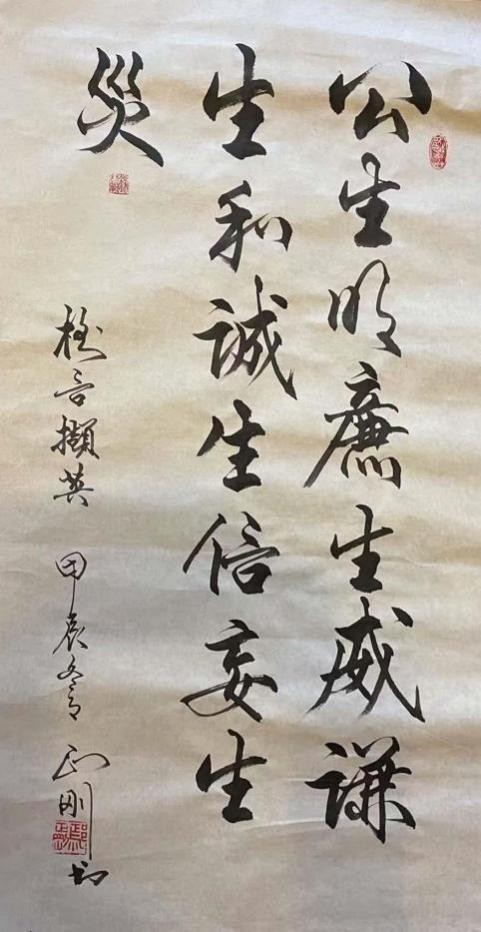 公生明廉生威谦
生和誠生信妄生
災
格言擷英 甲辰冬月 正刚书